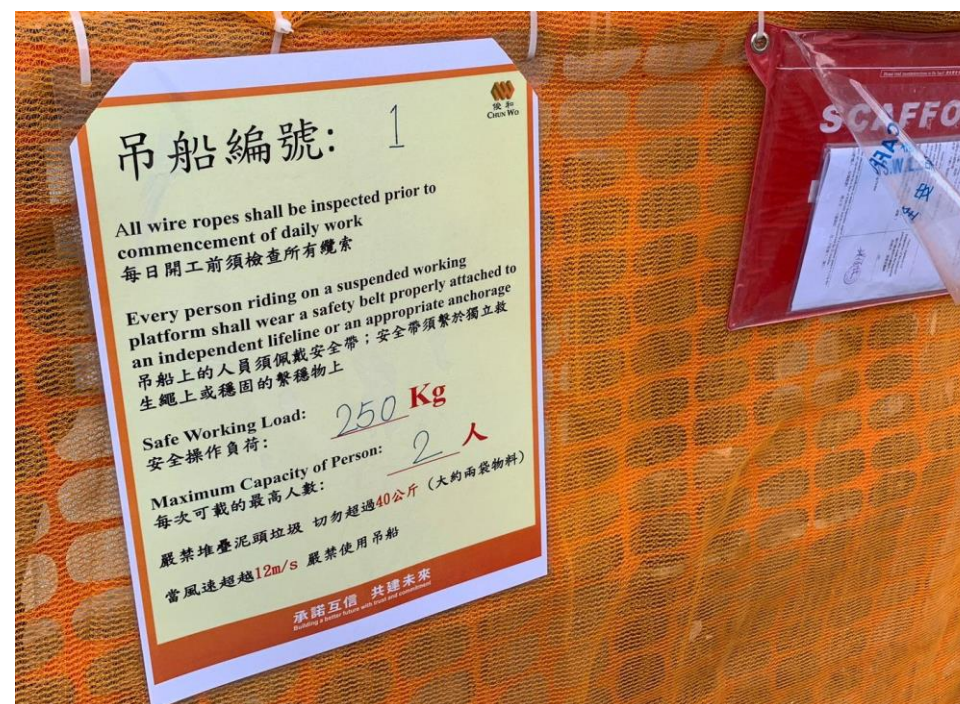 俊和
CHUN WO
吊船編號: 1
All wire ropes shall be inspected prior to
commencement of daily work
每日開工前須檢查所有纜索
Every person riding on a suspended working
platform shall wear a safety belt properly attached to
an independent lifeline or an appropriate anchorage
吊船上的人員須佩戴安全帶；安全帶須繫於獨立救
生繩上或穩固的繫穩物上
Safe Working Load: 250 Kg
安全操作負荷:
Maximum Capacity of Person: 2 人
每次可載的最高人數:
嚴禁堆疊泥頭垃圾 切勿超過40公斤 (大約兩袋物料)
當風速超越12m/s 嚴禁使用吊船
承諾互信 共建未來
Building a better future with trust and commitment
SCAFFO
S.W.L.